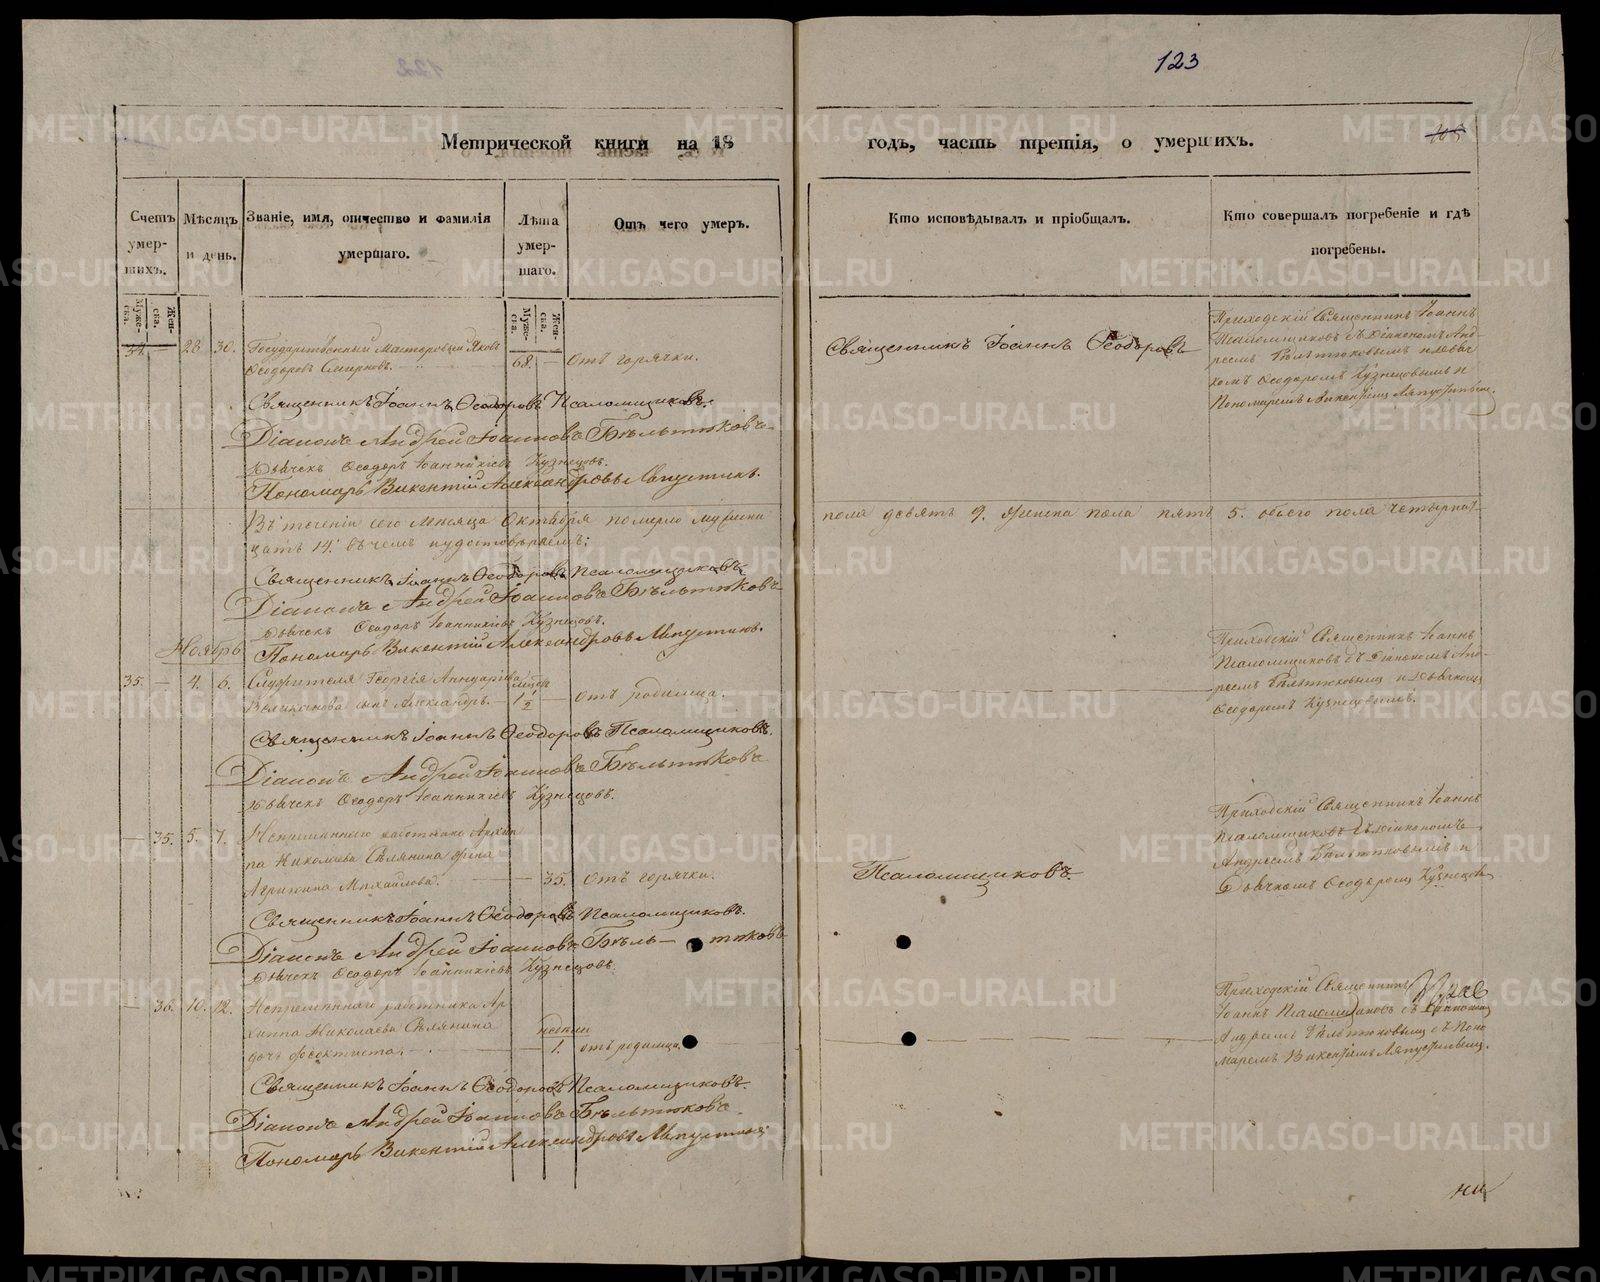 123
Метрической книги на 18 годъ, часть третія, о умершихъ.
Счетъ умер-шихъ.
Мѣсяцъ и день.
Званіе, имя, отчество и фамилія умершаго.
Лѣта умер-шаго.
Отъ чего умеръ.
Кто исповѣдывалъ и пріобщалъ.
Кто совершалъ погребеніе и гдѣ погребены.
Муже-ска.
Жен-ска.
Муже-ска.
Жен-ска.
34. — 28 30. Государственный Мастеровый Яковъ
Ѳеодоровъ Смирновъ. 68. — отъ горячки.
Священникъ Іоаннъ Ѳеодоровъ
Приходскій Священникъ Іоаннъ
Псаломщиковъ съ Діакономъ Анд-
реемъ Бѣльтюковымъ и дьяч-
комъ Ѳеодоромъ Кузнецовымъ и
Пономаремъ
Священникъ Іоаннъ Ѳеодоровъ Псаломщиковъ.
Діаконъ Андрей Іоанновъ Бѣльтюковъ
Дьячекъ Ѳеодоръ Іоанникіевъ Кузнецовъ.
Пономарь Викентій Александровъ Ляпустинъ.
Въ теченіи сего Мѣсяца Октября померло мужеска пола девять 9. женска пола пять 5. обоего пола четырнад-
цать 14. въ чемъ и удостовѣряемъ:
Священникъ Іоаннъ Ѳеодоровъ Псаломщиковъ
Діаконъ Андрей Іоанновъ Бѣльтюковъ
Дьячекъ Ѳеодоръ Іоанникіевъ Кузнецовъ.
Пономарь Викентій Александровъ Ляпустинъ.
Ноябрь
35. — 4. 6. Служителя Георгія
Великанова сынъ Александръ. — 1 1/2 — отъ родимца.
Приходскій Священникъ Іоаннъ
Псаломщиковъ съ Діакономъ Анд-
реемъ Бѣльтюковымъ и Дьячкомъ
Ѳеодоромъ Кузнецовымъ.
Священникъ Іоаннъ Ѳеодоровъ Псаломщиковъ.
Діаконъ Андрей Іоанновъ Бѣльтюковъ
Дьячекъ Ѳеодоръ Іоанникіевъ Кузнецовъ.
— 35. 5. 7. Непремѣннаго работника Архип-
па Николаева Селянина жена
Агрипина Михайлова. — 35. отъ горячки.
Псаломщиковъ.
Приходскій Священникъ Іоаннъ
Псаломщиковъ съ Діакономъ
Андреемъ Бѣльтюковымъ и
Дьячкомъ Ѳеодоромъ Кузнецов
Священникъ Іоаннъ Ѳеодоровъ Псаломщиковъ.
Діаконъ Андрей Іоанновъ Бѣль— тюковъ
Дьячекъ Ѳеодоръ Іоанникіевъ Кузнецовъ.
— 36. 10. 12. Непремѣннаго работника Ар-
хиппа Николаева Селянина
дочь Ѳеоктиста. — недѣли 1. отъ родимца.
Приходскій Священникъ
Іоаннъ Псаломщиковъ съ Діакономъ
Андреемъ Бѣльтюковымъ съ Поно-
маремъ Викентіемъ Ляпустинымъ.
Священникъ Іоаннъ Ѳеодоровъ Псаломщиковъ.
Діаконъ Андрей Іоанновъ Бѣльтюковъ.
Пономарь Викентій Александровъ Ляпустинъ
METRIKI.GASO-URAL.RU